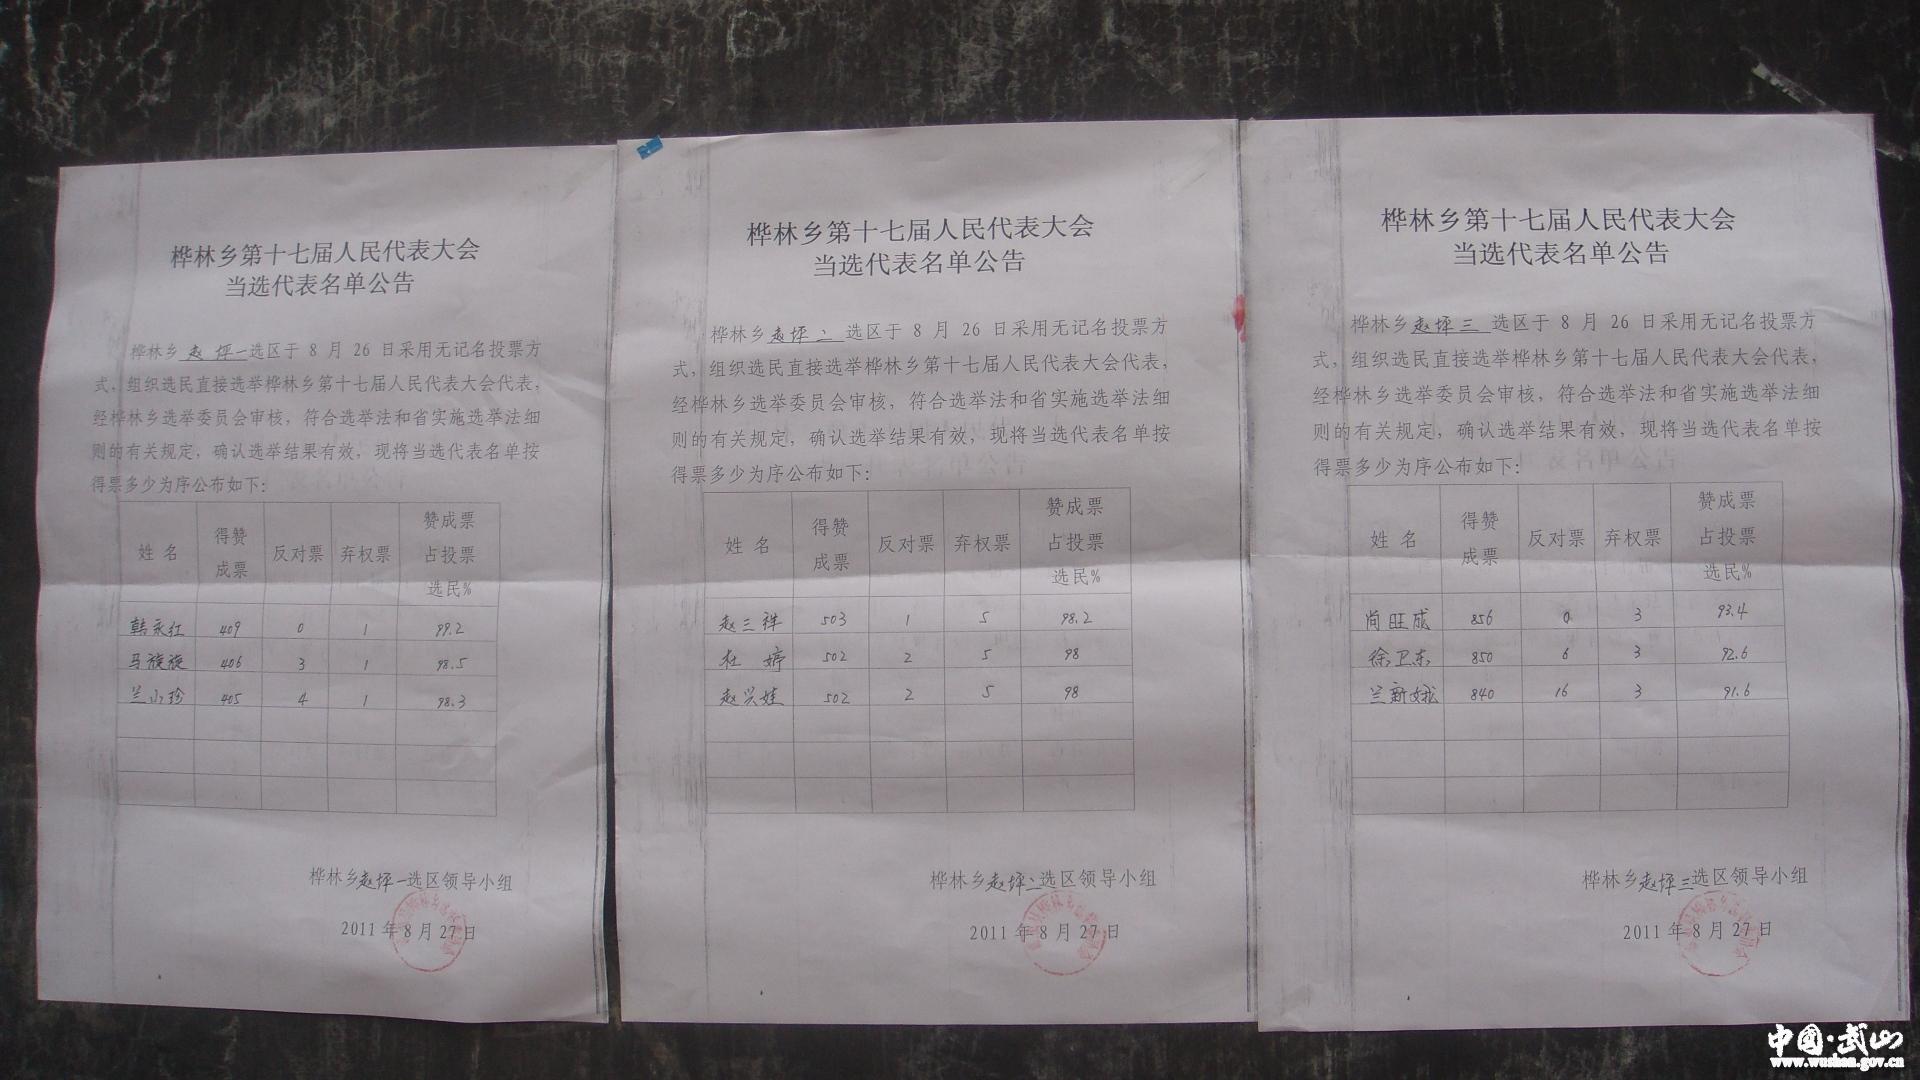 桦林乡第十七届人民代表大会
当选代表名单公告
桦林乡 赵坪一 选区于 8 月 26 日采用无记名投票方
式，组织选民直接选举桦林乡第十七届人民代表大会代表，
经桦林乡选举委员会审核，符合选举法和省实施选举法细
则的有关规定，确认选举结果有效，现将当选代表名单按
得票多少为序公布如下：
姓 名 得赞成票 反对票 弃权票 赞成票占投票选民%
韩永红 409 0 1 99.2
马旋旋 406 3 1 98.5
兰小珍 405 4 1 98.3
桦林乡赵坪一选区领导小组
2011 年 8 月 27 日
桦林乡第十七届人民代表大会
当选代表名单公告
桦林乡 赵坪二 选区于 8 月 26 日采用无记名投票方
式，组织选民直接选举桦林乡第十七届人民代表大会代表，
经桦林乡选举委员会审核，符合选举法和省实施选举法细
则的有关规定，确认选举结果有效，现将当选代表名单按
得票多少为序公布如下：
姓 名 得赞成票 反对票 弃权票 赞成票占投票选民%
赵三祥 503 1 5 98.2
杜 婷 502 2 5 98
赵兴娃 502 2 5 98
桦林乡赵坪二选区领导小组
2011 年 8 月 27 日
桦林乡第十七届人民代表大会
当选代表名单公告
桦林乡 赵坪三 选区于 8 月 26 日采用无记名投票方
式，组织选民直接选举桦林乡第十七届人民代表大会代表，
经桦林乡选举委员会审核，符合选举法和省实施选举法细
则的有关规定，确认选举结果有效，现将当选代表名单按
得票多少为序公布如下：
姓 名 得赞成票 反对票 弃权票 赞成票占投票选民%
尚旺成 856 0 3 93.4
徐卫东 850 6 3 92.6
兰新娥 840 16 3 91.6
桦林乡赵坪三选区领导小组
2011 年 8 月 27 日
中国·武山
www.wushan.gov.cn